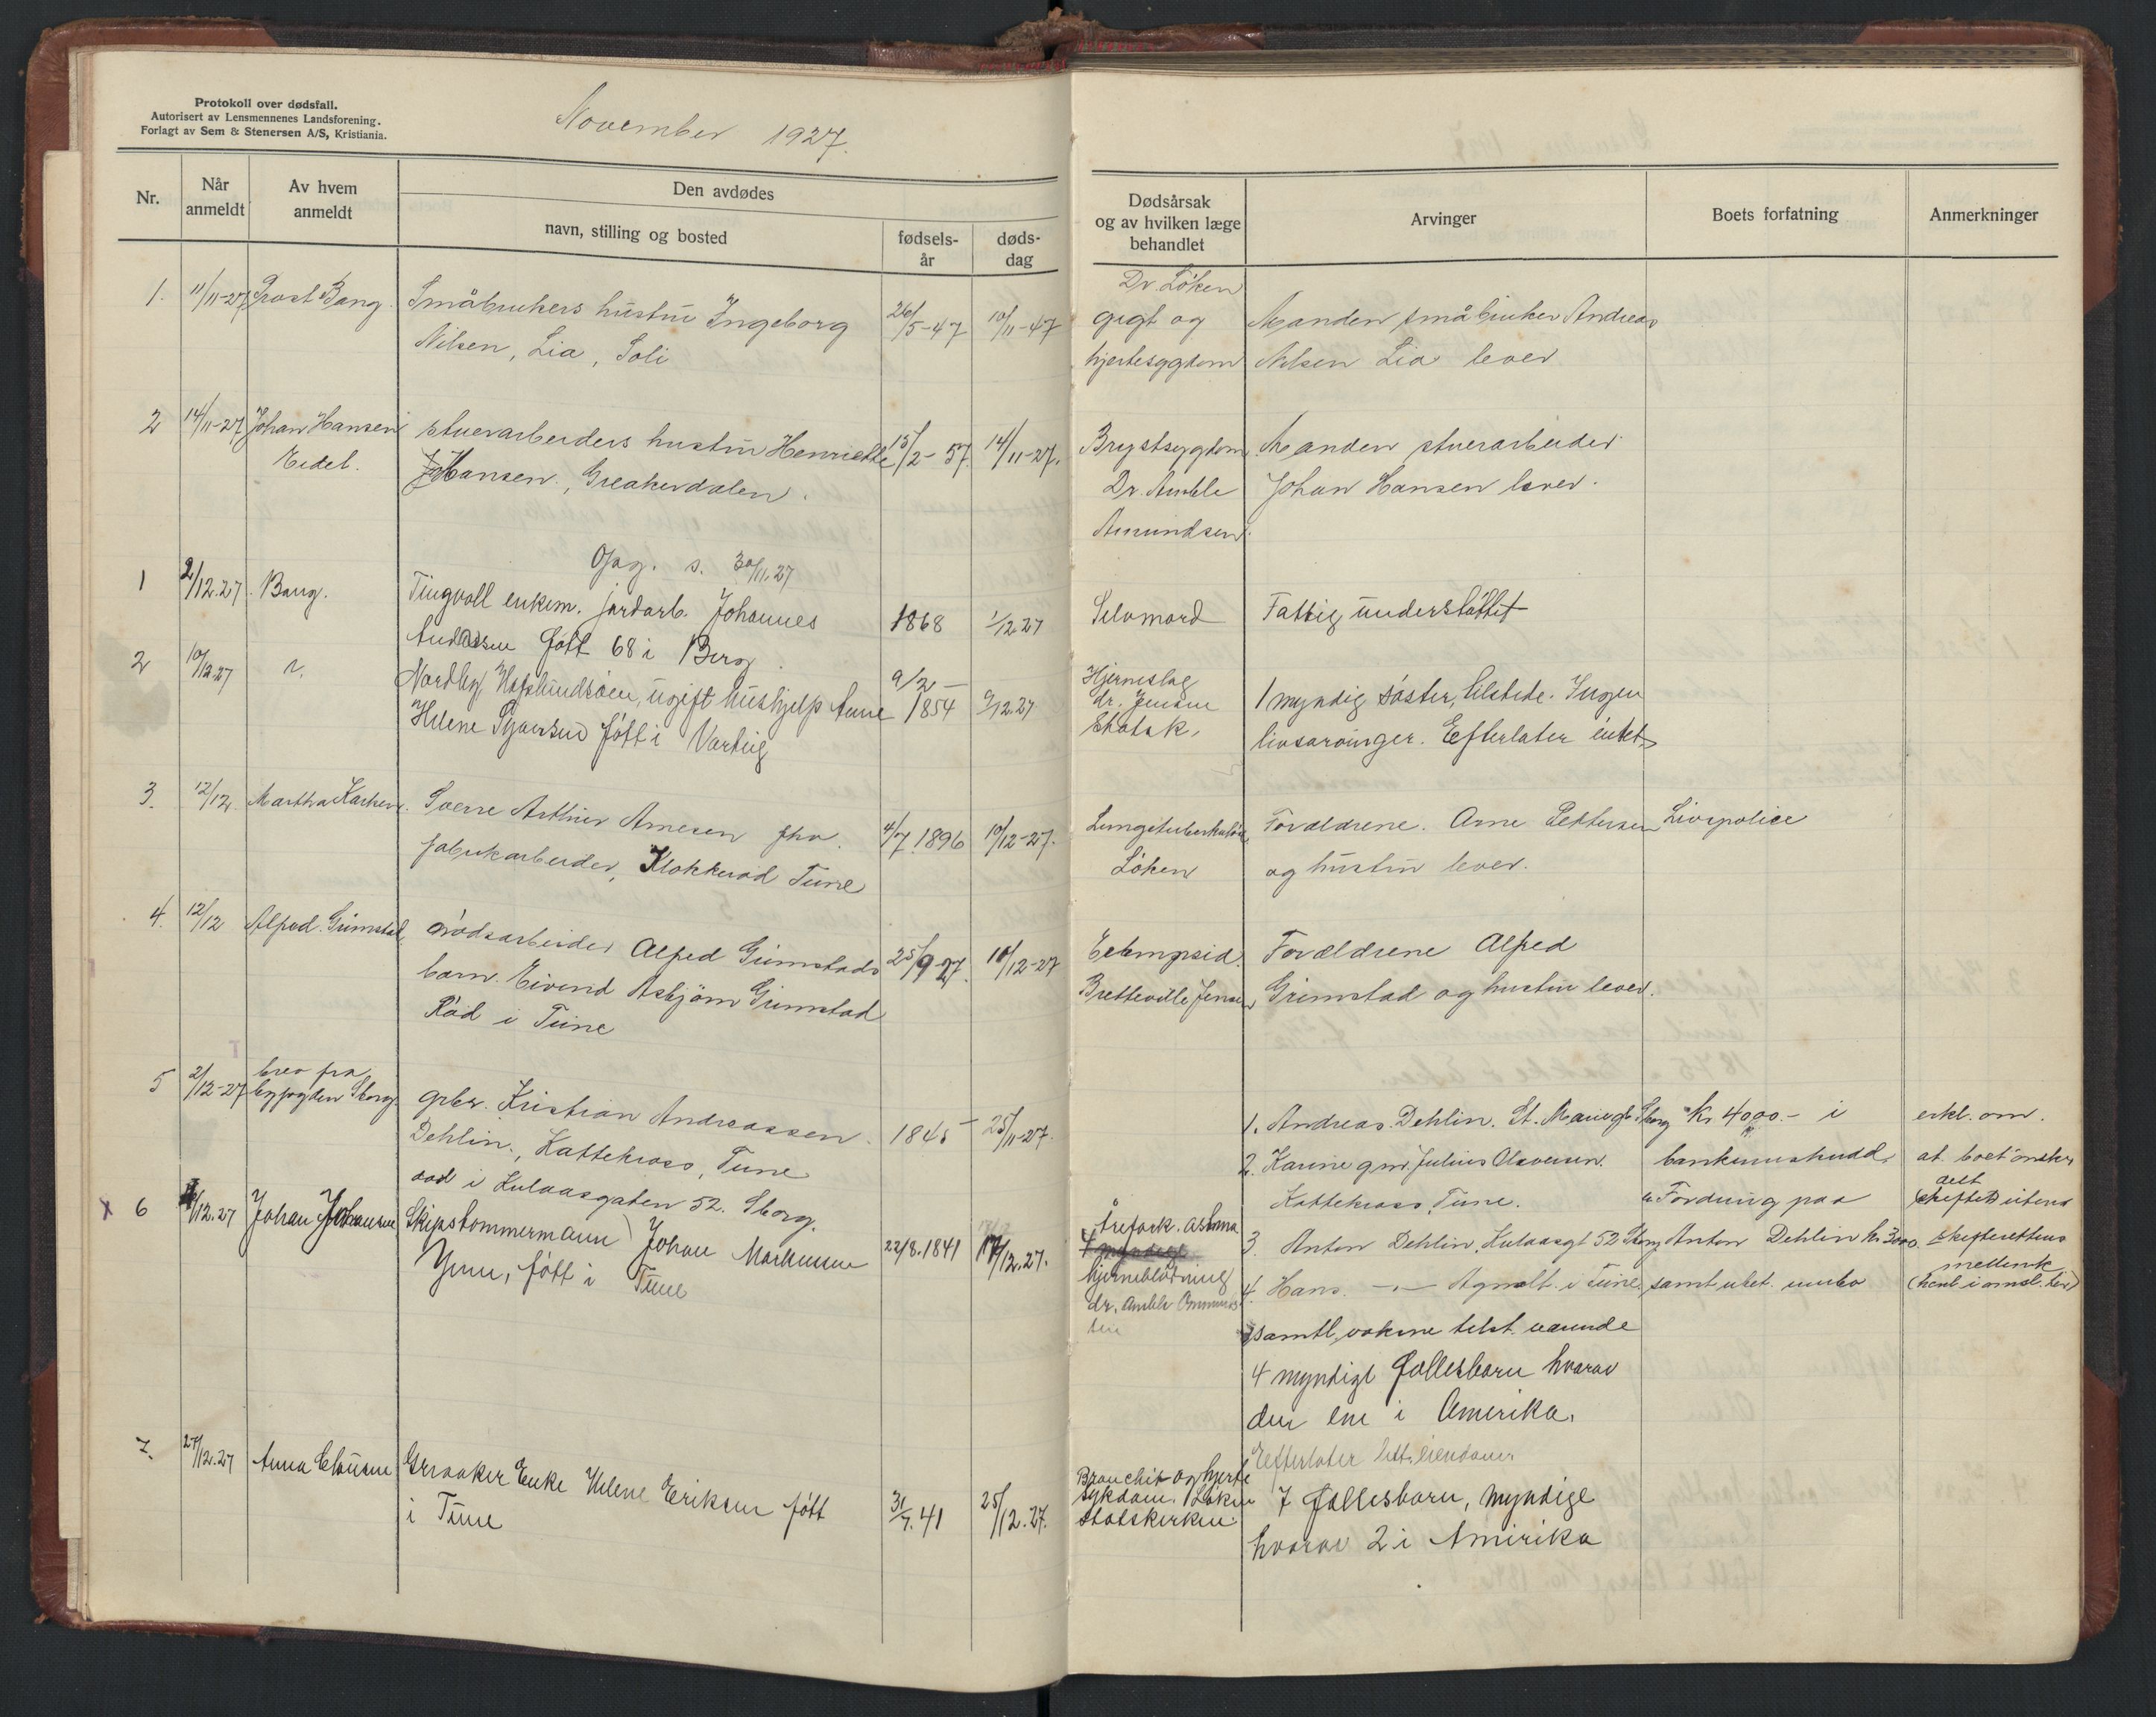 Protokoll over dødsfall.
Autorisert av Lensmennenes Landsforening.
Forlagt av Sem & Stenersen A/S, Kristiania.
November 1927.
Nr.
Når anmeldt
Av hvem anmeldt
Den avdødes
navn, stilling og bosted
fødsels-
år
døds-
dag
Dødsårsak
og av hvilken læge
behandlet
Arvinger
Boets forfatning
Anmerkninger
1. 11/11-27 Prost Bang. Småbrukers hustru Ingeborg 26/5-47 10/11-47
Nilsen, Lia, Soli
Dr. Löken
gigt og
hjertesygdom
Manden småbruker Andreas
Nilsen Lia lever
2 14/11-27 Johan Hansen stuerarbeiders hustru Henriette 15/2-57. 14/11-27.
Eidet. Hansen, Greakerdalen.
Brystsygdom
Dr. Amble
Amundsen.
Manden stuerarbeider
Johan Hansen lever.
Opg. s. 30/11.27
1 2/12.27. Bang. Tingvoll enkem. jordarb. Johannes 1868 1/12.27
Andersen født 68 i Berg.
Selvmord
Fattigunderstöttet
2 10/12.27 Nordby, Hafslundsöen, ugift hushjelp Anne 9/2-1854 9/12.27
Helene födt i Varteig
Hjerneslag
dr. Jensen
Statsk.
1 myndig söster, tilstede. Ingen
livsarvinger. Efterlater intet
3. 12/12 Martha Karlsen. Sverre Arthur Arnesen fhv. 4/7.1896 10/12-27.
fabrikarbeider, Klokkerød Tune
Lungetuberkulöse
Löken
Forældrene. Arne Pettersen
og hustru lever.
Livspolice
4. 12/12 Alfred Grimstad. Alfred Grimstads 25/9-27. 10/12-27
barn. Eivind Asbjörn Grimstad
Röd i Tune
Bretteville Jensen
Forældrene Alfred
Grimstad og hustru lever.
5 2/12-27 brev fra
byfogden Sborg. gbr. Kristian Andreassen 1845 25/11-27.
Dehlin, Kattekross, Tune
död i Kulaasgaten 52. Sborg.
1. Andreas Dehlin. St. Mariegt Sborg
2. Karine gm. Julius Olavesen.
Kattekross, Tune.
3. Anton Dehlin, Kulaasgt 52 Sborg
4. Hans -"- Agnalt i Tune
samtl. voksne
Kr 4000.- i
bankinnskudd,
Fordring paa
Anton Dehlin kr 3000.
samt ubet. innbo
erkl. om.
at boet ønskes
skiftet utenom
skifterettens
x 6 12.27 Johan Johansen Skipstømmermann Johan Markussen 22/8.1841 17/12.27.
Ynn, født i Tune
Årefork. astma
hjerneblødning
dr. Amble
4 myndige fellesbarn hvorav
den ene i Amerika.
Efterlater
7. 27/12.27 Anna Clausen Greaaker Enke Helene Eriksen født 31/7.41 25/12.27.
i Tune
Bronchit og hjerte
sykdom. Löken
Statskirken.
7 fellesbarn, myndige
hvorav 2 i Amerika